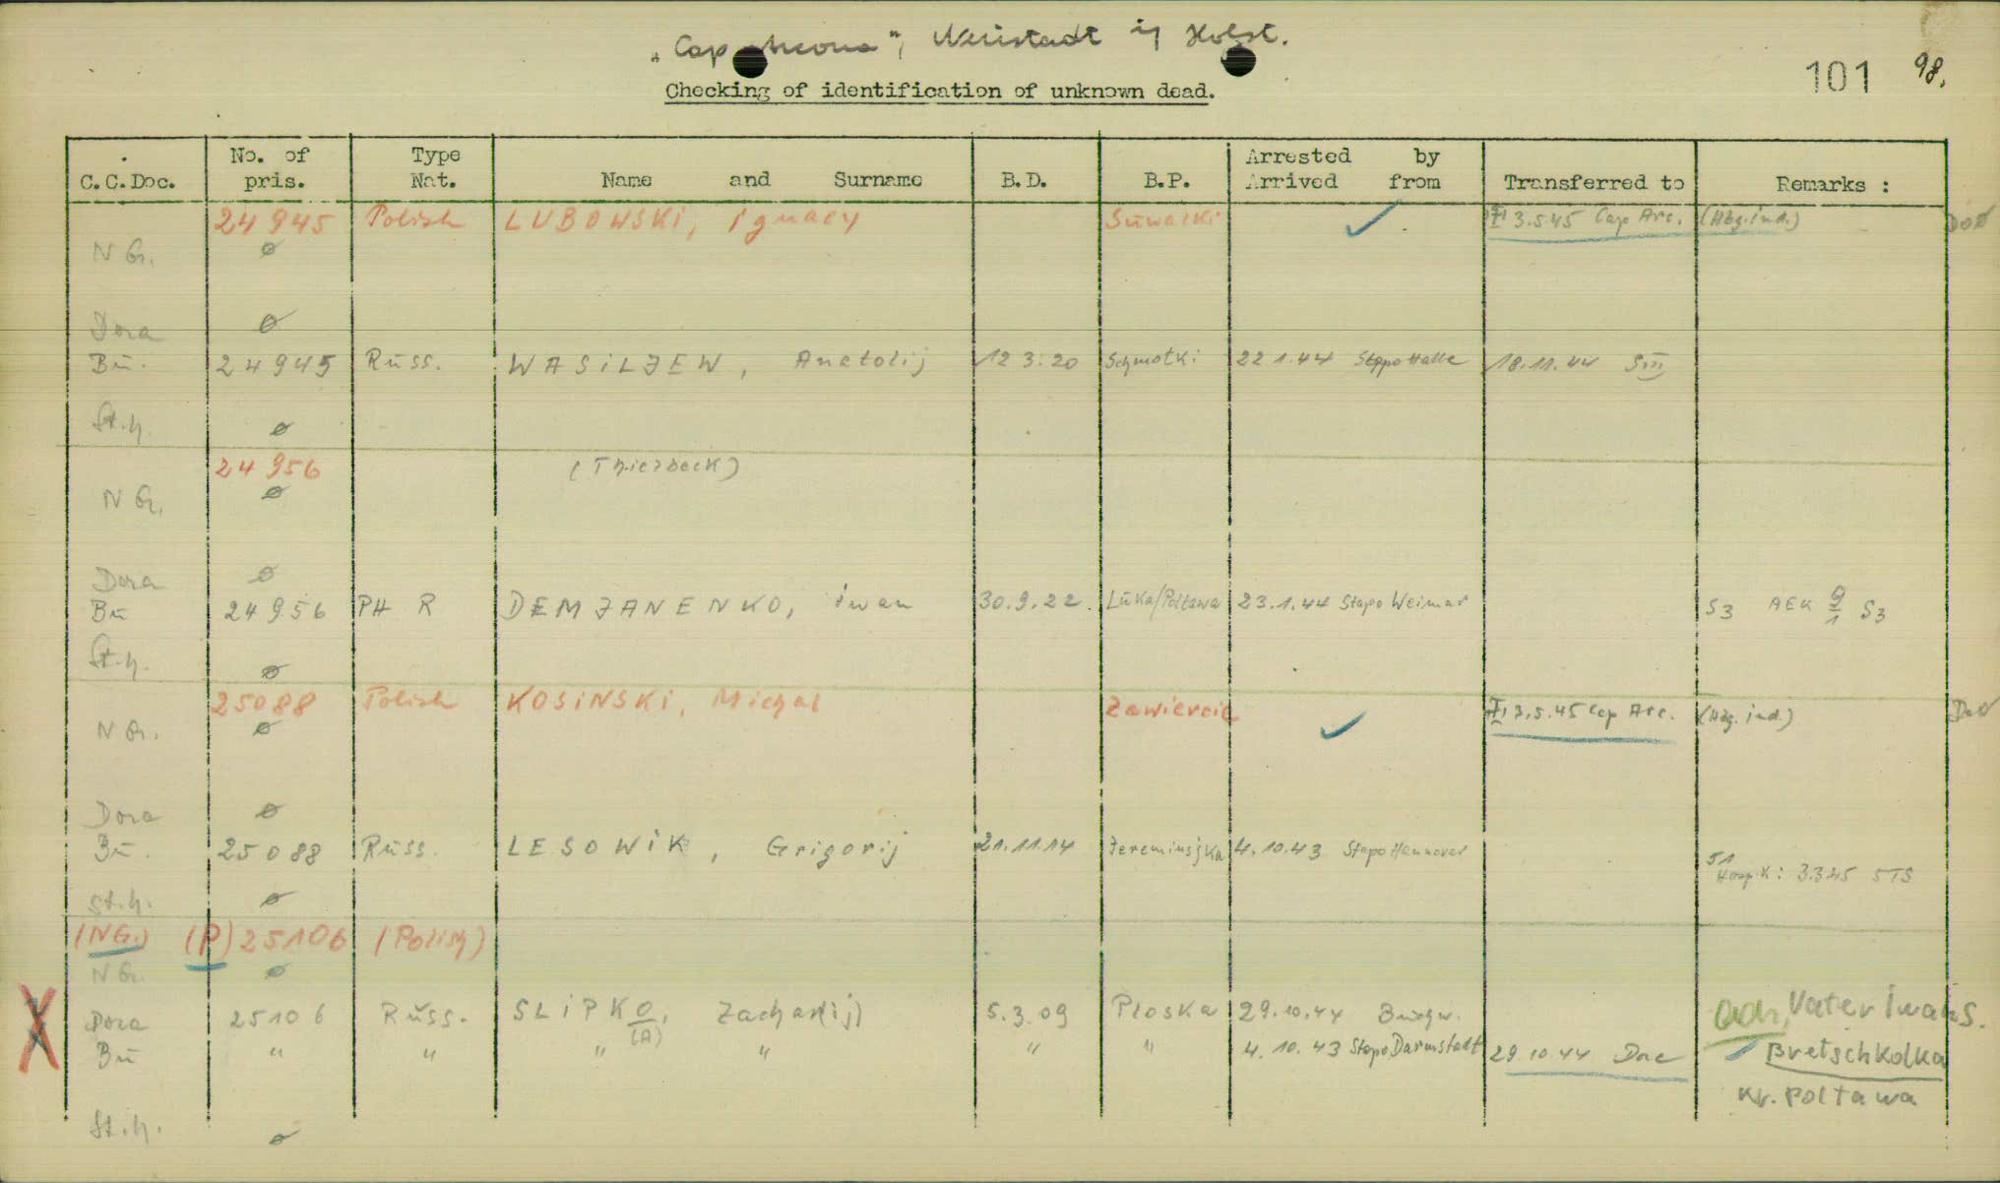 „Cap Arcona", Neustadt i/ Holst.
101 98.
Checking of identification of unknown dead.
C.C.Doc. No. of pris. Type Nat. Name and Surname B.D. B.P. Arrested by Arrived from Transferred to Remarks :
24945 Polish LUBOWSKi, ignacy Suwalki ✓ 3.5.45 Cap Arc. (Hbg.ind.)
N G. ø
Dora ø
Bu. 24945 Russ. WASiLJEW, Anatolij 12 3.20 Schmotki 22 1.44 Stapo Halle 18.11.44 SIII
St.h. ø
24956 (Thierbeck)
N G. ø
Dora ø
Bu 24956 PH R DEMJANENKO, iwan 30.9.22. Luka/Poltawa 23.1.44 Stapo Weimar S3 AEK 9/1 S3
St.h. ø
25088 Polish KOSiNSKi, Michal Zawiercie ✓ 3.5.45 Cap Arc. (Hbg. ind.)
N G. ø
Dora ø
Bu. 25088 Russ. LESOWiK, Grigorij 21.11.14 Jereminsjka 4.10.43 Stapo Hannover
S1
Hosp.K: 3.3.45 STS
St.h. ø
(NG.) (P) 25106 (Polish)
N G. ø
Dora 25106 Russ. SLiPKO, (A) Zachar(ij) 5.3.09 Ploska 29.10.44 Buchw. Adr. Vater iwan S.
Bu " " " " " " 4.10.43 Stapo Darmstadt 29.10.44 Dora Bretschkolka
Kr. Poltawa
St.h. ø